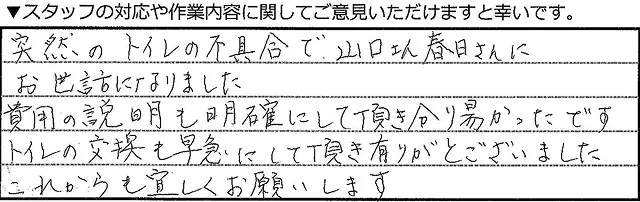 ▼スタッフの対応や作業内容に関してご意見いただけますと幸いです。
突然のトイレの不具合で山口さん春日さんに
お世話になりました
費用の説明も明確にして頂き分り易かったです
トイレの交換も早急にして頂き有りがとございました
これからも宜しくお願いします